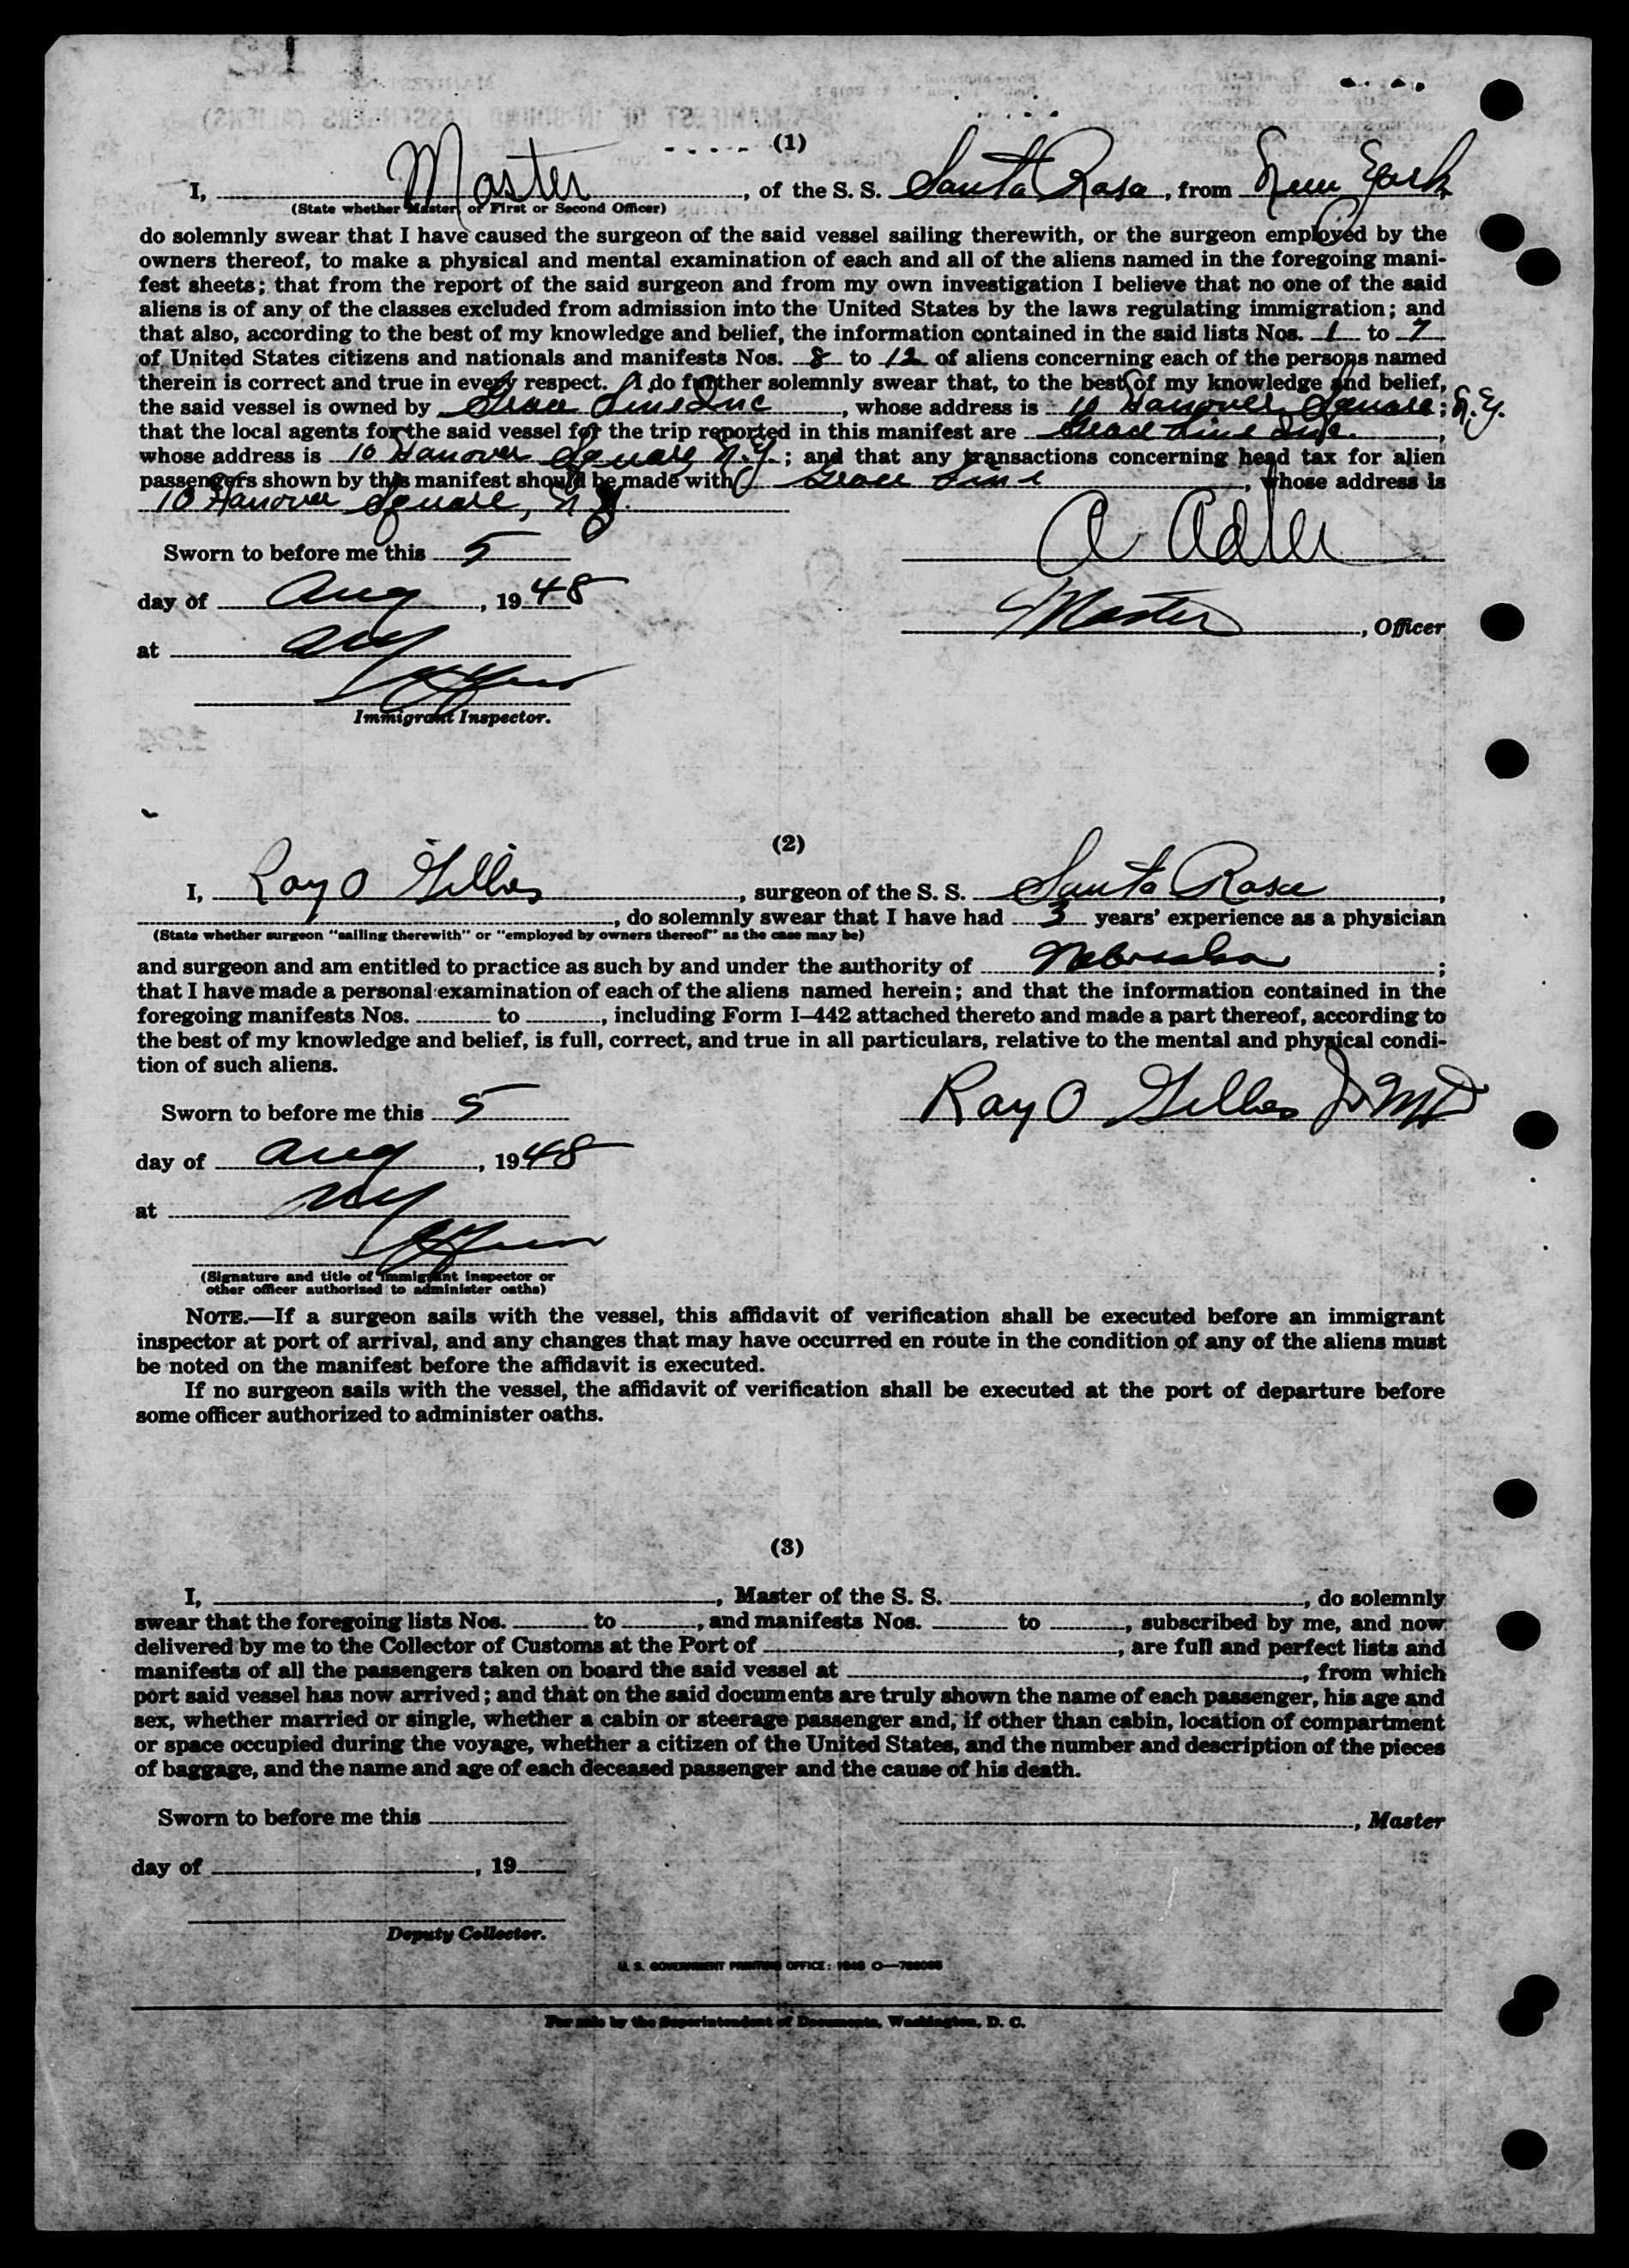 (1)
I, Master, of the S. S. Santa Rosa, from New York
(State whether Master, or First or Second Officer)
do solemnly swear that I have caused the surgeon of the said vessel sailing therewith, or the surgeon employed by the
owners thereof, to make a physical and mental examination of each and all of the aliens named in the foregoing mani-
fest sheets; that from the report of the said surgeon and from my own investigation I believe that no one of the said
aliens is of any of the classes excluded from admission into the United States by the laws regulating immigration; and
that also, according to the best of my knowledge and belief, the information contained in the said lists Nos. 1 to 7
of United States citizens and nationals and manifests Nos. 8 to 12 of aliens concerning each of the persons named
therein is correct and true in every respect. I do further solemnly swear that, to the best of my knowledge and belief,
the said vessel is owned by Grace Line Inc, whose address is 10 Hanover Square; N.Y.
that the local agents for the said vessel for the trip reported in this manifest are Grace Line Inc.,
whose address is 10 Hanover Square N.Y.; and that any transactions concerning head tax for alien
passengers shown by this manifest should be made with Grace Line, whose address is
10 Hanover Square, N.Y.
Sworn to before me this 5
A Adler
day of Aug, 1948
Master, Officer
at NY
Immigrant Inspector.
(2)
I, Ray O Gillies, surgeon of the S. S. Santa Rosa,
, do solemnly swear that I have had 3 years' experience as a physician
(State whether surgeon "sailing therewith" or "employed by owners thereof" as the case may be)
and surgeon and am entitled to practice as such by and under the authority of Nebraska;
that I have made a personal examination of each of the aliens named herein; and that the information contained in the
foregoing manifests Nos. to , including Form I-442 attached thereto and made a part thereof, according to
the best of my knowledge and belief, is full, correct, and true in all particulars, relative to the mental and physical condi-
tion of such aliens.
Sworn to before me this 5
Ray O Gillies Jr MD
day of Aug, 1948
at NY
(Signature and title of immigrant inspector or
other officer authorized to administer oaths)
NOTE.—If a surgeon sails with the vessel, this affidavit of verification shall be executed before an immigrant
inspector at port of arrival, and any changes that may have occurred en route in the condition of any of the aliens must
be noted on the manifest before the affidavit is executed.
If no surgeon sails with the vessel, the affidavit of verification shall be executed at the port of departure before
some officer authorized to administer oaths.
(3)
I, , Master of the S. S. , do solemnly
swear that the foregoing lists Nos. to , and manifests Nos. to , subscribed by me, and now
delivered by me to the Collector of Customs at the Port of , are full and perfect lists and
manifests of all the passengers taken on board the said vessel at , from which
port said vessel has now arrived; and that on the said documents are truly shown the name of each passenger, his age and
sex, whether married or single, whether a cabin or steerage passenger and, if other than cabin, location of compartment
or space occupied during the voyage, whether a citizen of the United States, and the number and description of the pieces
of baggage, and the name and age of each deceased passenger and the cause of his death.
Sworn to before me this
, Master
day of , 19
Deputy Collector.
U. S. GOVERNMENT PRINTING OFFICE:
For sale by the Superintendent of Documents, Washington, D. C.